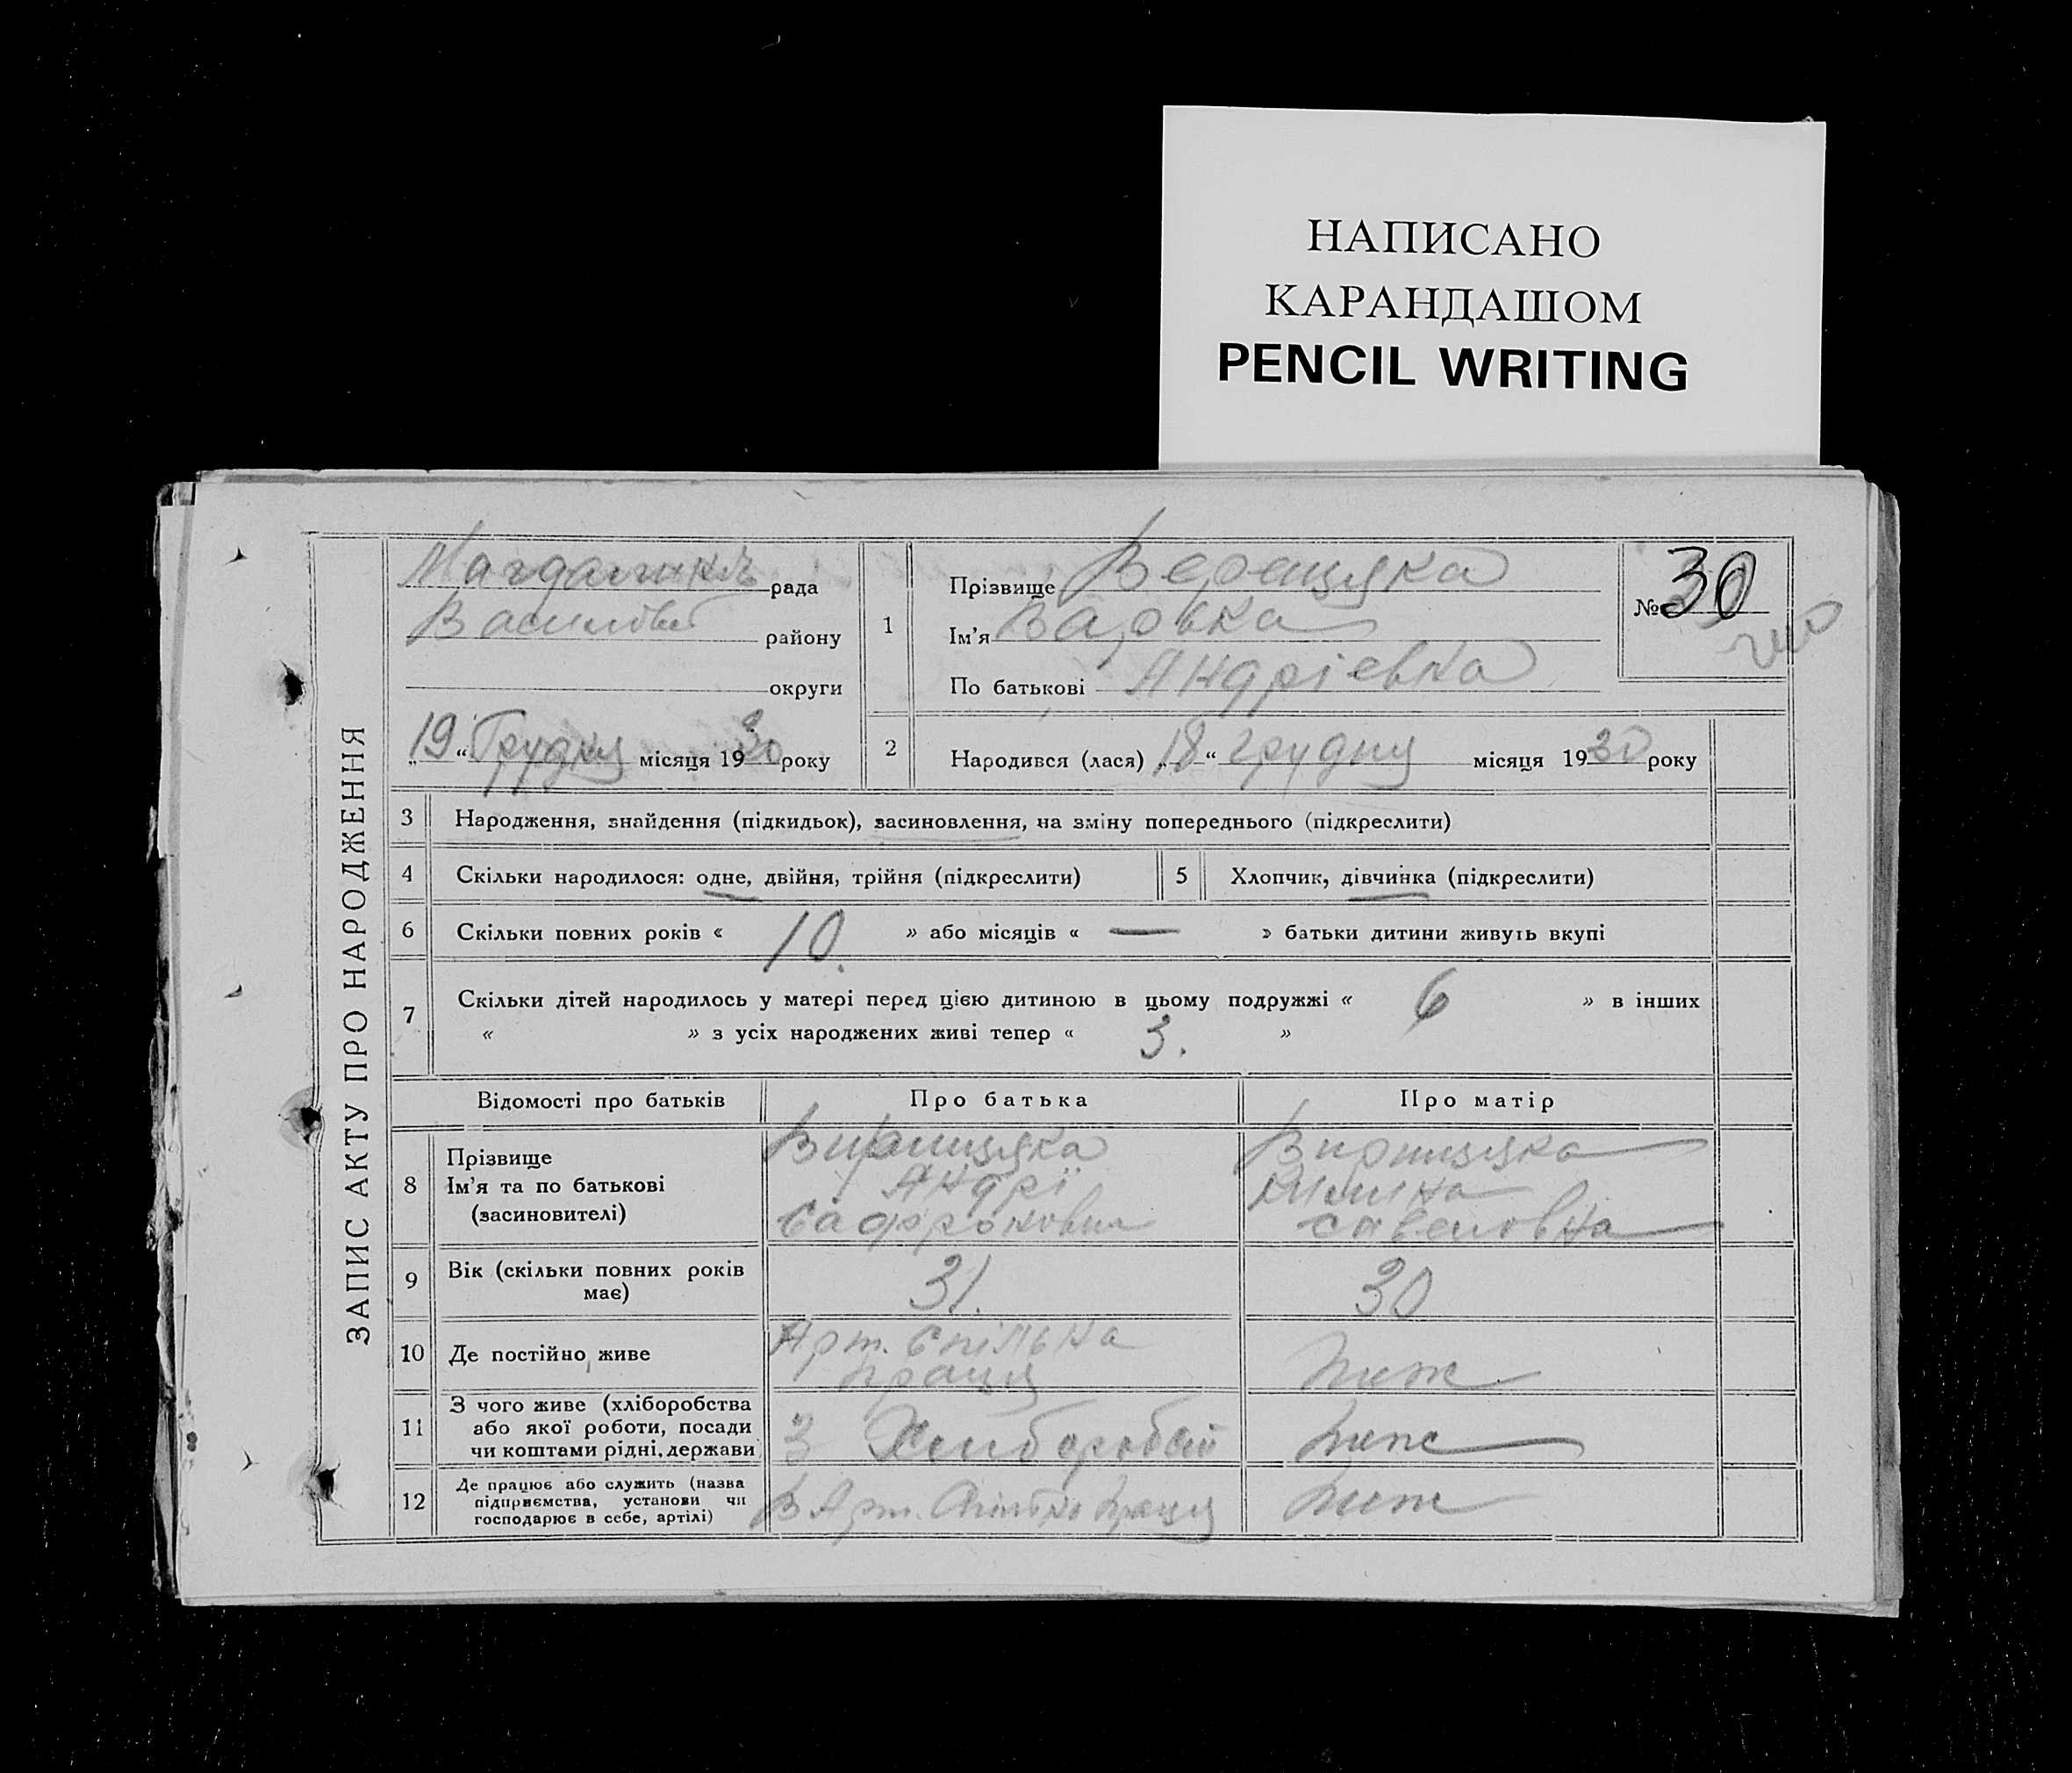 НАПИСАНО
КАРАНДАШОМ
PENCIL WRITING
ЗАПИС АКТУ ПРО НАРОДЖЕННЯ
рада
району
округи
„19“ Грудня місяця 1930 року
1
Прізвище Верещяка
Ім'я Варька
По батькові Андріевна
№ 30
2
Народився (лася) „18“ грудня місяця 1930 року
3 Народження, знайдення (підкидьок), засиновлення, на зміну попереднього (підкреслити)
4 Скільки народилося: одне, двійня, трійня (підкреслити)
5 Хлопчик, дівчинка (підкреслити)
6 Скільки повних років « 10. » або місяців « — » батьки дитини живуть вкупі
7 Скільки дітей народилось у матері перед цією дитиною в цьому подружжі « 6 » в інших
« » з усіх народжених живі тепер « 3. »
Відомості про батьків
Про батька
Про матір
8
Прізвище
Ім'я та по батькові
(засиновителі)
Вирищяка
Андрі
Вирищяка
Савеловна
9
Вік (скільки повних років
має)
31.
30
10 Де постійно живе
Арт. Спілька
праця
11
З чого живе (хліборобства
або якої роботи, посади
чи коштами рідні, держави
З
12
Де працює або служить (назва
підприємства, установи чи
господарює в себе, артілі)
В Арт. праця